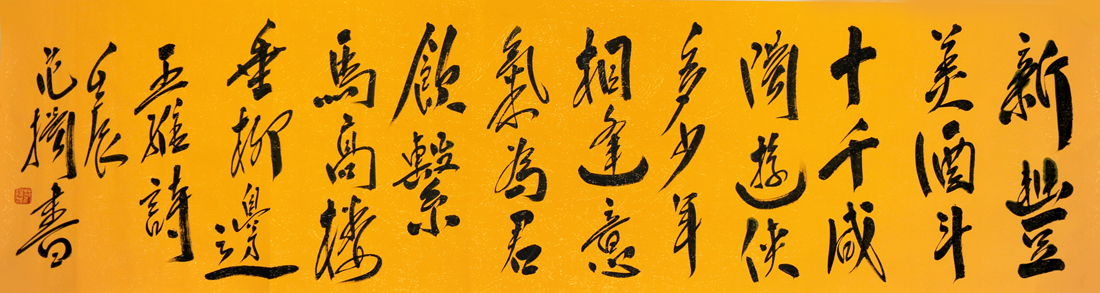 新豐
美酒斗
十千咸
陽遊俠
多少年
相逢意
氣為君
飲繫
馬高樓
垂柳邊
王維詩
壬辰
范書